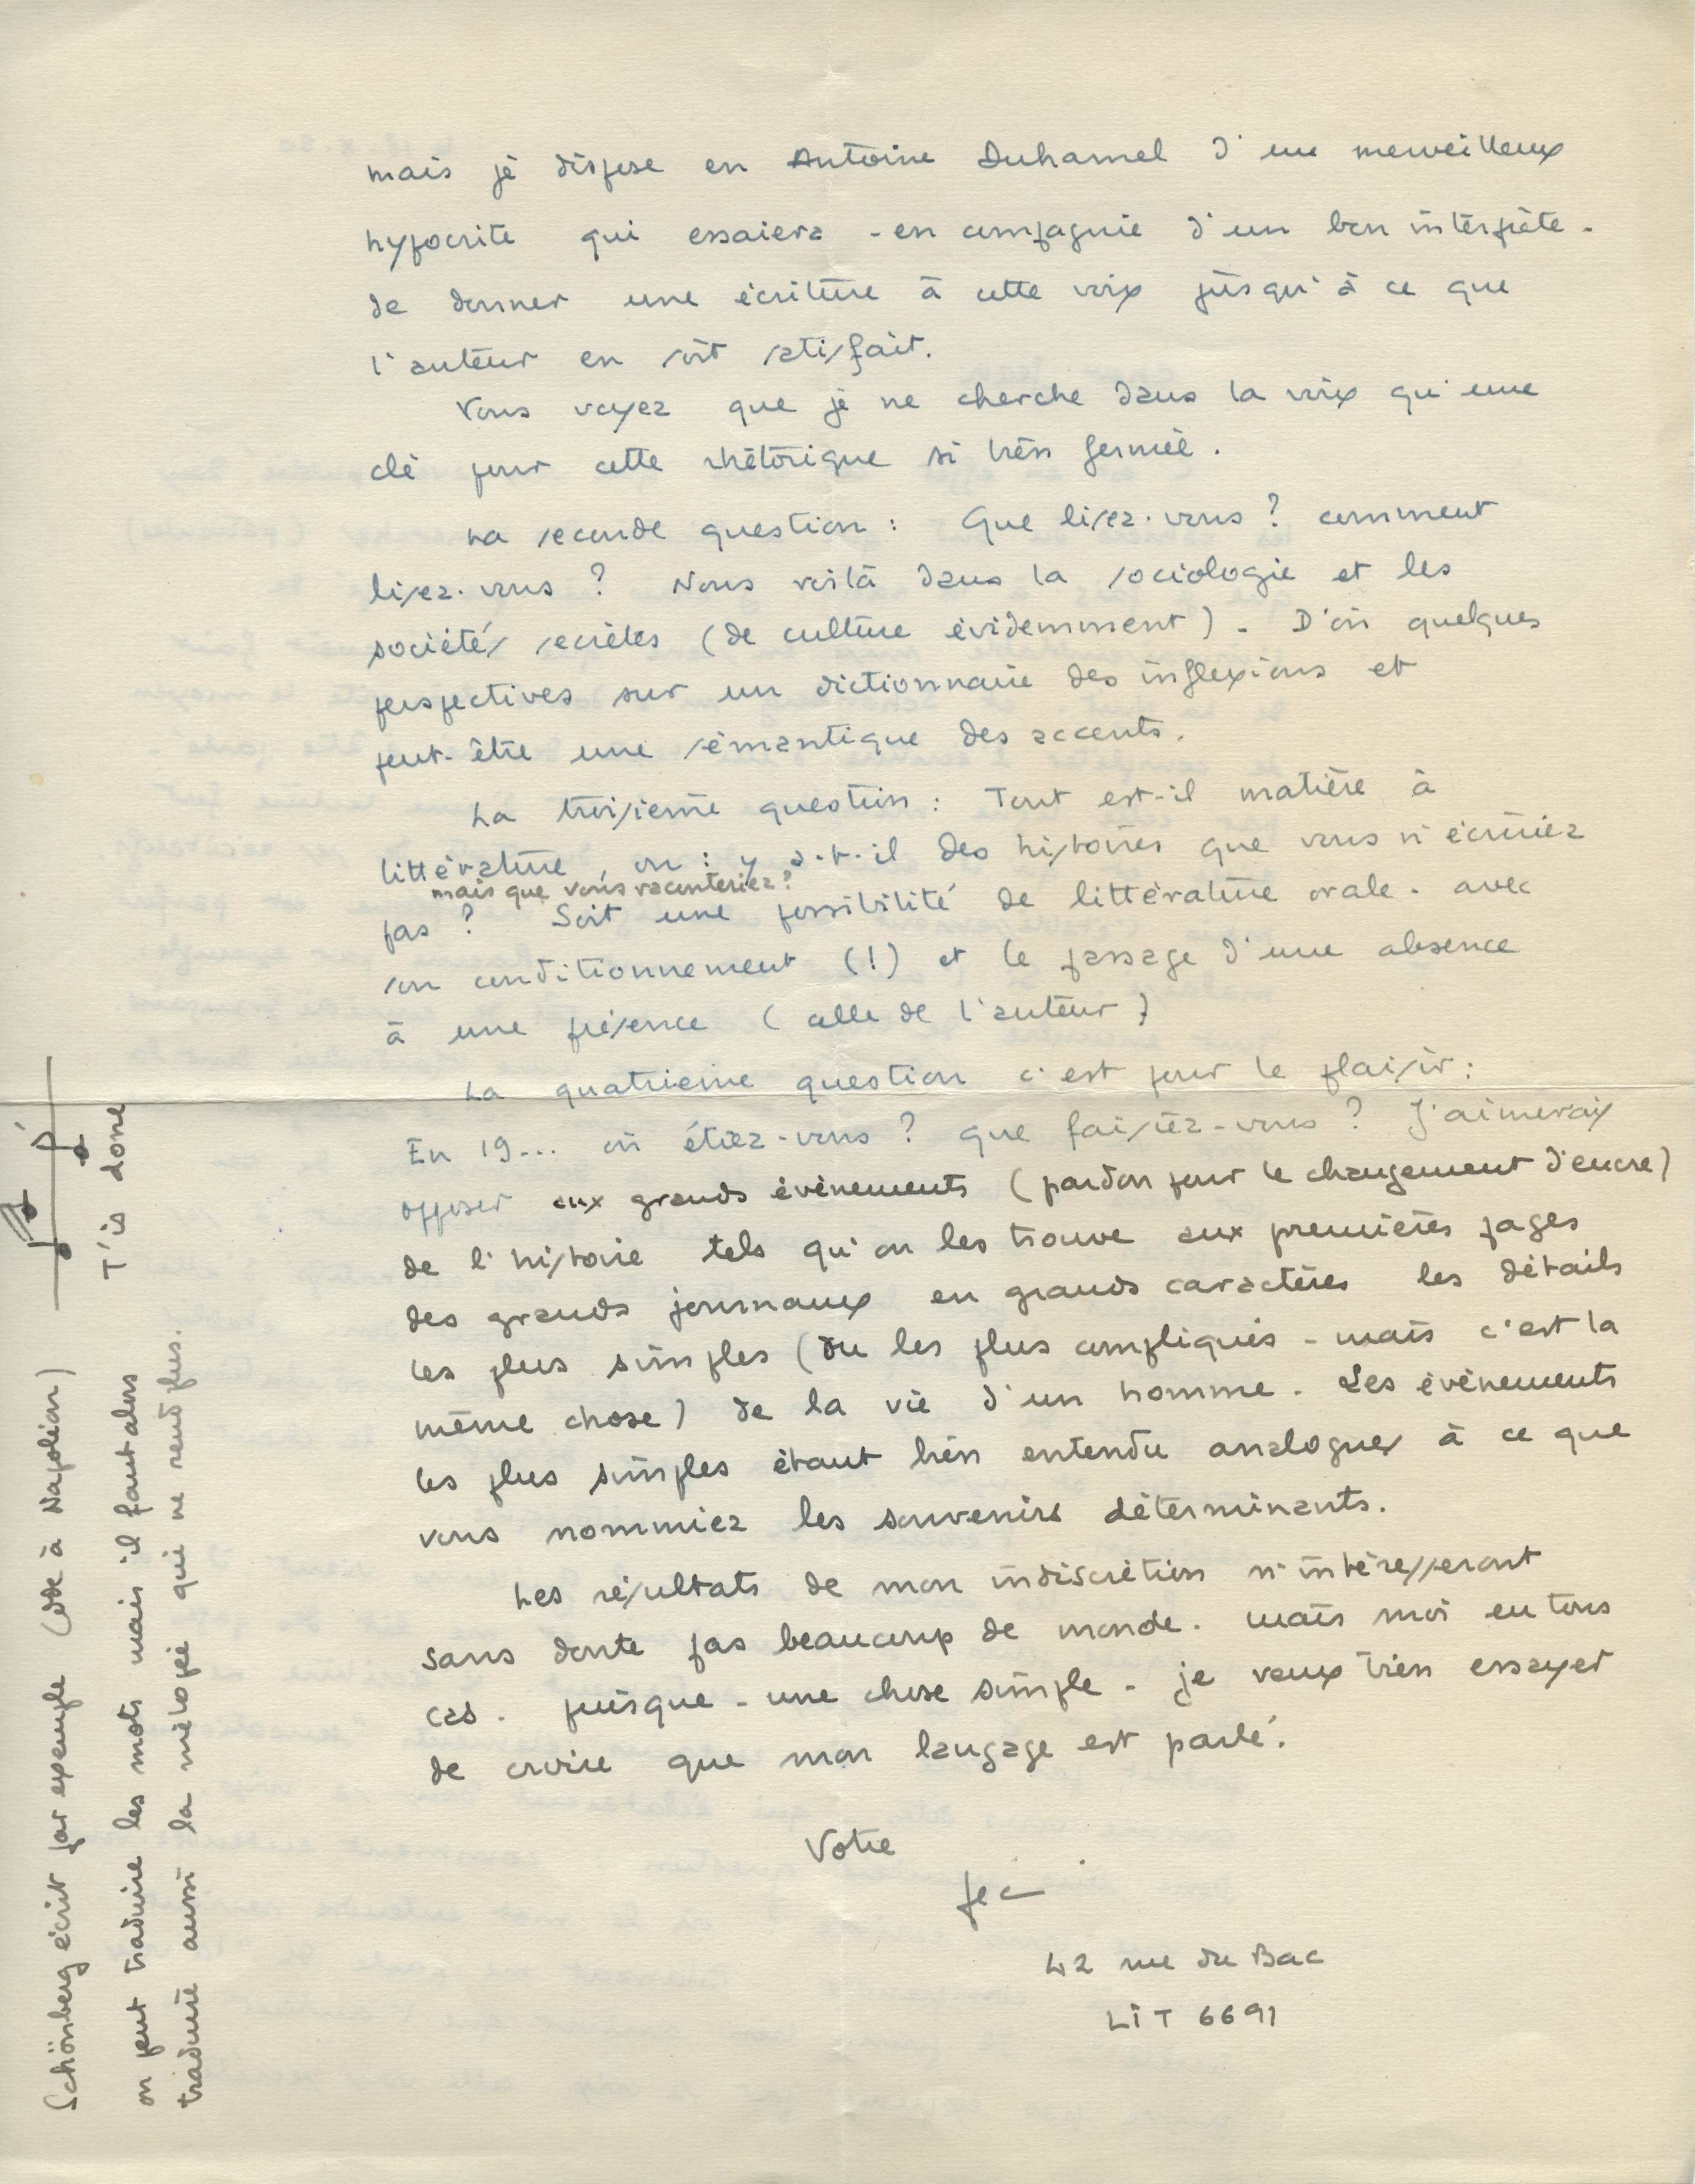 mais je dispose en Antoine Duhamel d'un merveilleux
hypocrite qui essaiera - en compagnie d'un bon interprète -
de donner une écriture à cette voix jusqu'à ce que
l'auteur en soit satisfait.
Vous voyez que je ne cherche dans la voix qu'une
clé pour cette rhétorique si bien fermée.
La seconde question : Que lisez-vous ? comment
lisez-vous ? Nous voilà dans la sociologie et les
sociétés secrètes (de culture évidemment). D'où quelques
perspectives sur un dictionnaire des inflexions et
peut-être une sémantique des accents.
La troisième question : Tout est-il matière à
littérature, ou : y a-t-il des histoires que vous n'écririez
mais que vous raconteriez ?
pas ? Soit une possibilité de littérature orale - avec
son conditionnement (!) et le passage d'une absence
à une présence (celle de l'auteur)
La quatrième question c'est pour le plaisir :
En 19... où étiez-vous ? que faisiez-vous ? J'aimerais
opposer aux grands évènements (pardon pour le changement d'encre)
de l'histoire tels qu'on les trouve aux premières pages
des grands journaux en grands caractères les détails
les plus simples (ou les plus compliqués - mais c'est la
même chose) de la vie d'un homme. Les évènements
les plus simples étant bien entendu analogues à ce que
vous nommiez les souvenirs déterminants.
Les résultats de mon indiscrétion n'intéresseront
sans doute pas beaucoup de monde. Mais moi en tous
cas. Puisque - une chose simple - je veux bien essayer
de croire que mon langage est parlé.
Votre
42 rue du Bac
LIT 6691
Schönberg écrit par exemple (Ode à Napoléon)
T'is done
on peut traduire les mots mais il faut alors
traduire aussi la mélopée qui ne rend plus.